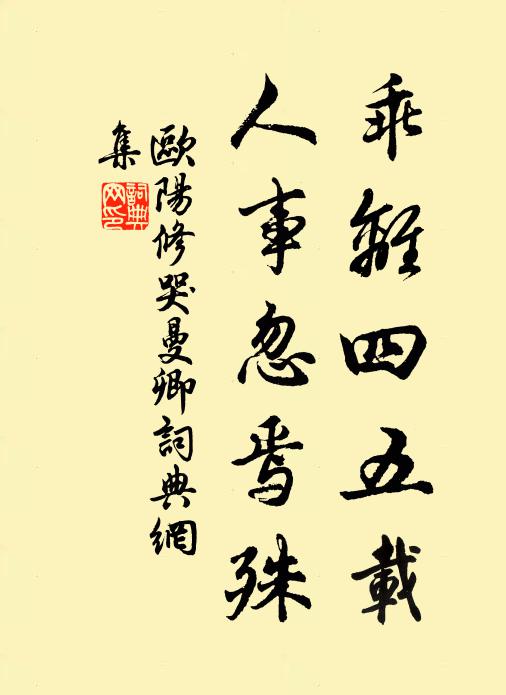 乖離四五載
人事忽焉殊
歐陽修哭曼卿詞典網
集
詞典網印